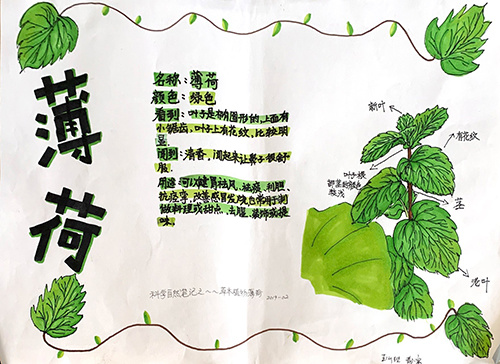 薄荷
名称：薄荷
颜色：绿色
看到：叶子是椭圆形的，上面有
小锯齿，叶子上有花纹，比较明
显。
闻到：清香，闻起来让鼻子很舒
服。
用途：可以健胃祛风、祛痰、利胆、
抗痉挛，改善感冒发烧，也常用于制
做料理或甜点、去腥、装饰或提
味。
科学自然笔记之～～草本植物薄荷 2019.02
新叶
有花纹
叶子根
部茎的颜色
较浅
茎
老叶